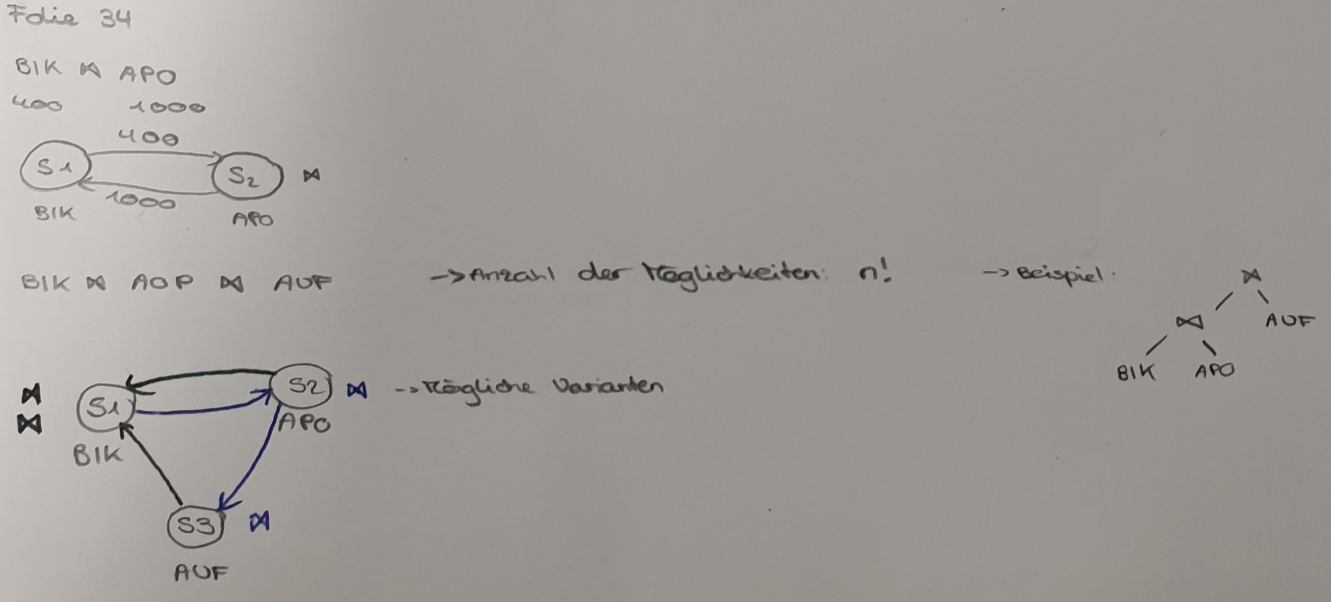 Folie 34
BIK ⋈ APO
400 1000
400
S1 S2 ⋈
1000
BIK APO
BIK ⋈ AOP ⋈ AUF → Anzahl der Möglichkeiten: n! → Beispiel:
⋈
⋈ AUF
BIK APO
⋈ S1 S2 ⋈ → Mögliche Varianten
⋈ APO
BIK
S3 ⋈
AUF